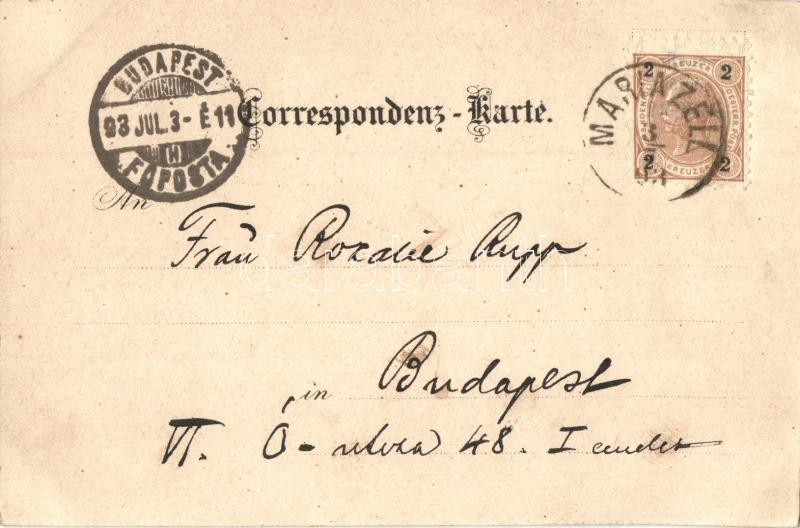 BUDAPEST
93 JUL. 3 - É 11
H
FŐPOSTA
Correspondenz-Karte.
2 KREUZER 2
MARIAZELL
2 KREUZER 2
An
Frau Rozalie Rupp
darabanth
in Budapest
VI. Ó-utcza 48. I